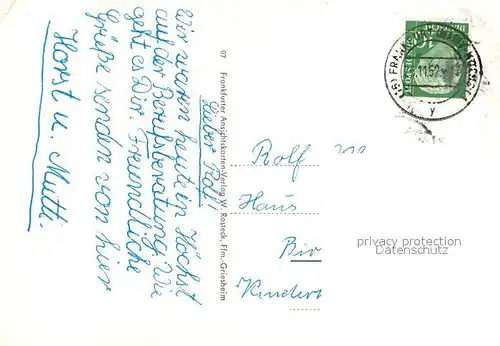 Lieber Rolf!
Wir waren heute in Höchst
auf der Berufsberatung. Wie
geht es Dir. Freundliche
Grüße senden von hier
Horst u. Mutti.
07 Frankfurter Ansichtskarten-Verlag W. Rosteck, Ffm.-Griesheim
FRANKFURT
y
Rolf
Haus
Bir
Kinderh
privacy protection
Datenschutz